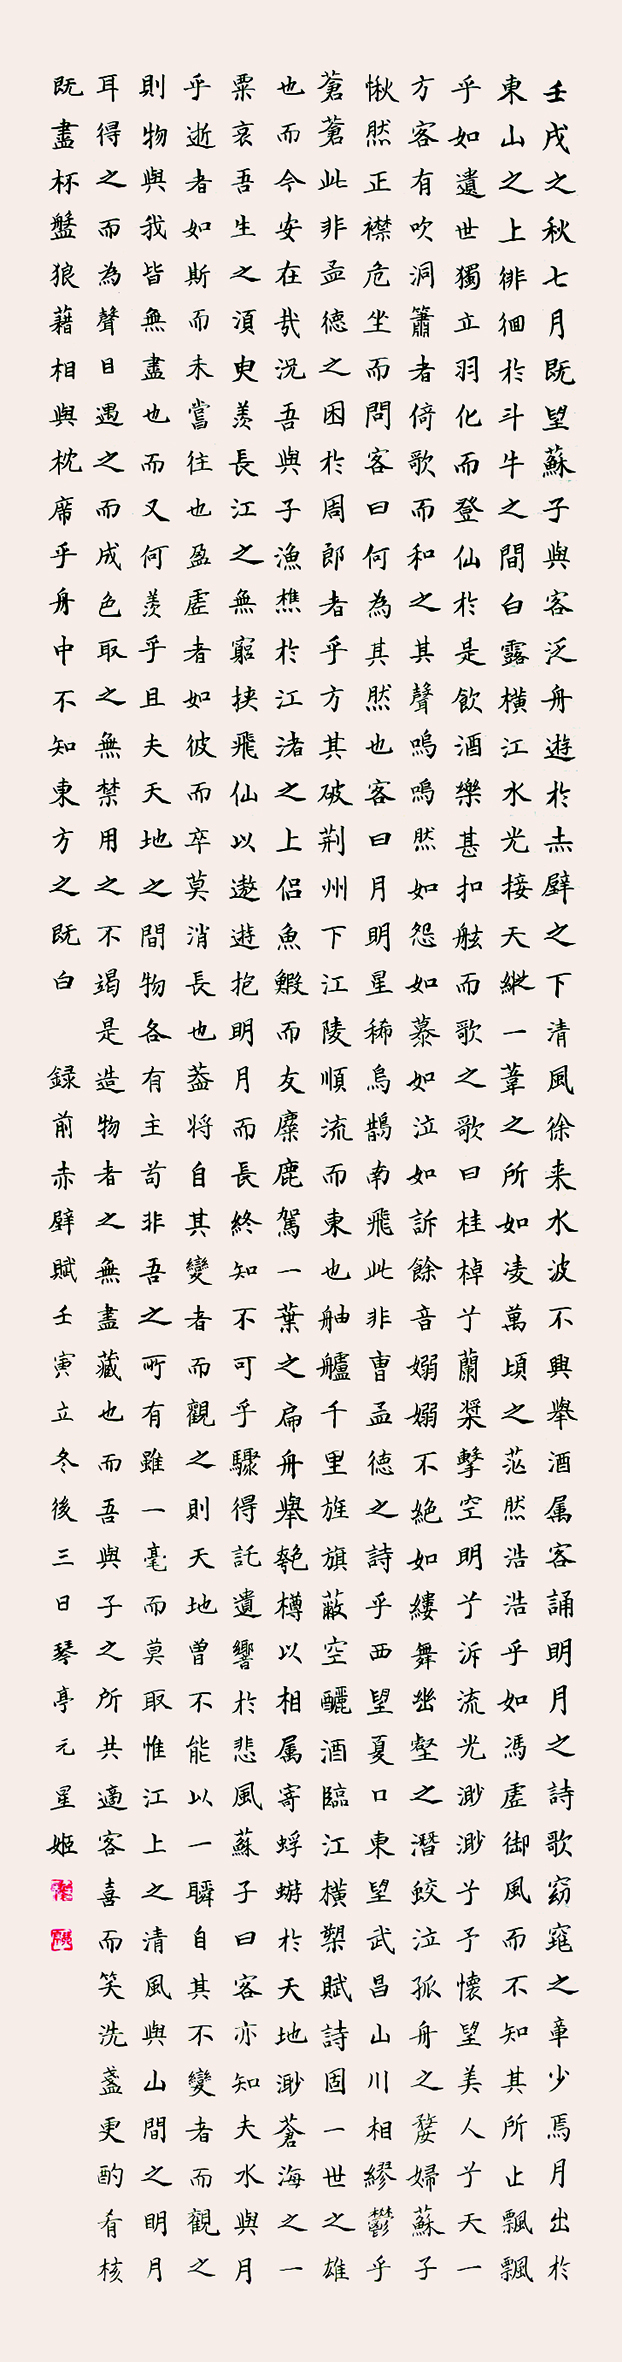 壬戌之秋七月既望蘇子與客泛舟遊於赤壁之下清風徐来水波不興舉酒属客誦明月之詩歌窈窕之章少焉月出於
東山之上徘徊於斗牛之間白露橫江水光接天縱一葦之所如凌萬頃之茫然浩浩乎如馮虛御風而不知其所止飄飄
乎如遺世獨立羽化而登仙於是飲酒樂甚扣舷而歌之歌曰桂棹兮蘭槳擊空明兮泝流光渺渺兮予懷望美人兮天一
方客有吹洞簫者倚歌而和之其聲嗚嗚然如怨如慕如泣如訴餘音嫋嫋不絕如縷舞幽壑之潛蛟泣孤舟之嫠婦蘇子
愀然正襟危坐而問客曰何為其然也客曰月明星稀烏鵲南飛此非曹孟德之詩乎西望夏口東望武昌山川相繆鬱乎
蒼蒼此非孟德之困於周郎者乎方其破荆州下江陵順流而東也舳艫千里旌旗蔽空釃酒臨江橫槊賦詩固一世之雄
也而今安在哉況吾與子漁樵於江渚之上侶魚鰕而友麋鹿駕一葉之扁舟舉匏樽以相属寄蜉蝣於天地渺蒼海之一
粟哀吾生之須臾羨長江之無窮挟飛仙以遨遊抱明月而長終知不可乎驟得託遺響於悲風蘇子曰客亦知夫水與月
乎逝者如斯而未嘗往也盈虛者如彼而卒莫消長也葢将自其變者而觀之則天地曾不能以一瞬自其不變者而觀之
則物與我皆無盡也而又何羨乎且夫天地之間物各有主苟非吾之所有雖一毫而莫取惟江上之清風與山間之明月
耳得之而為聲目遇之而成色取之無禁用之不竭是造物者之無盡藏也而吾與子之所共適客喜而笑洗盞更酌肴核
既盡杯盤狼藉相與枕席乎舟中不知東方之既白 録前赤壁賦壬寅立冬後三日琴亭元星姬